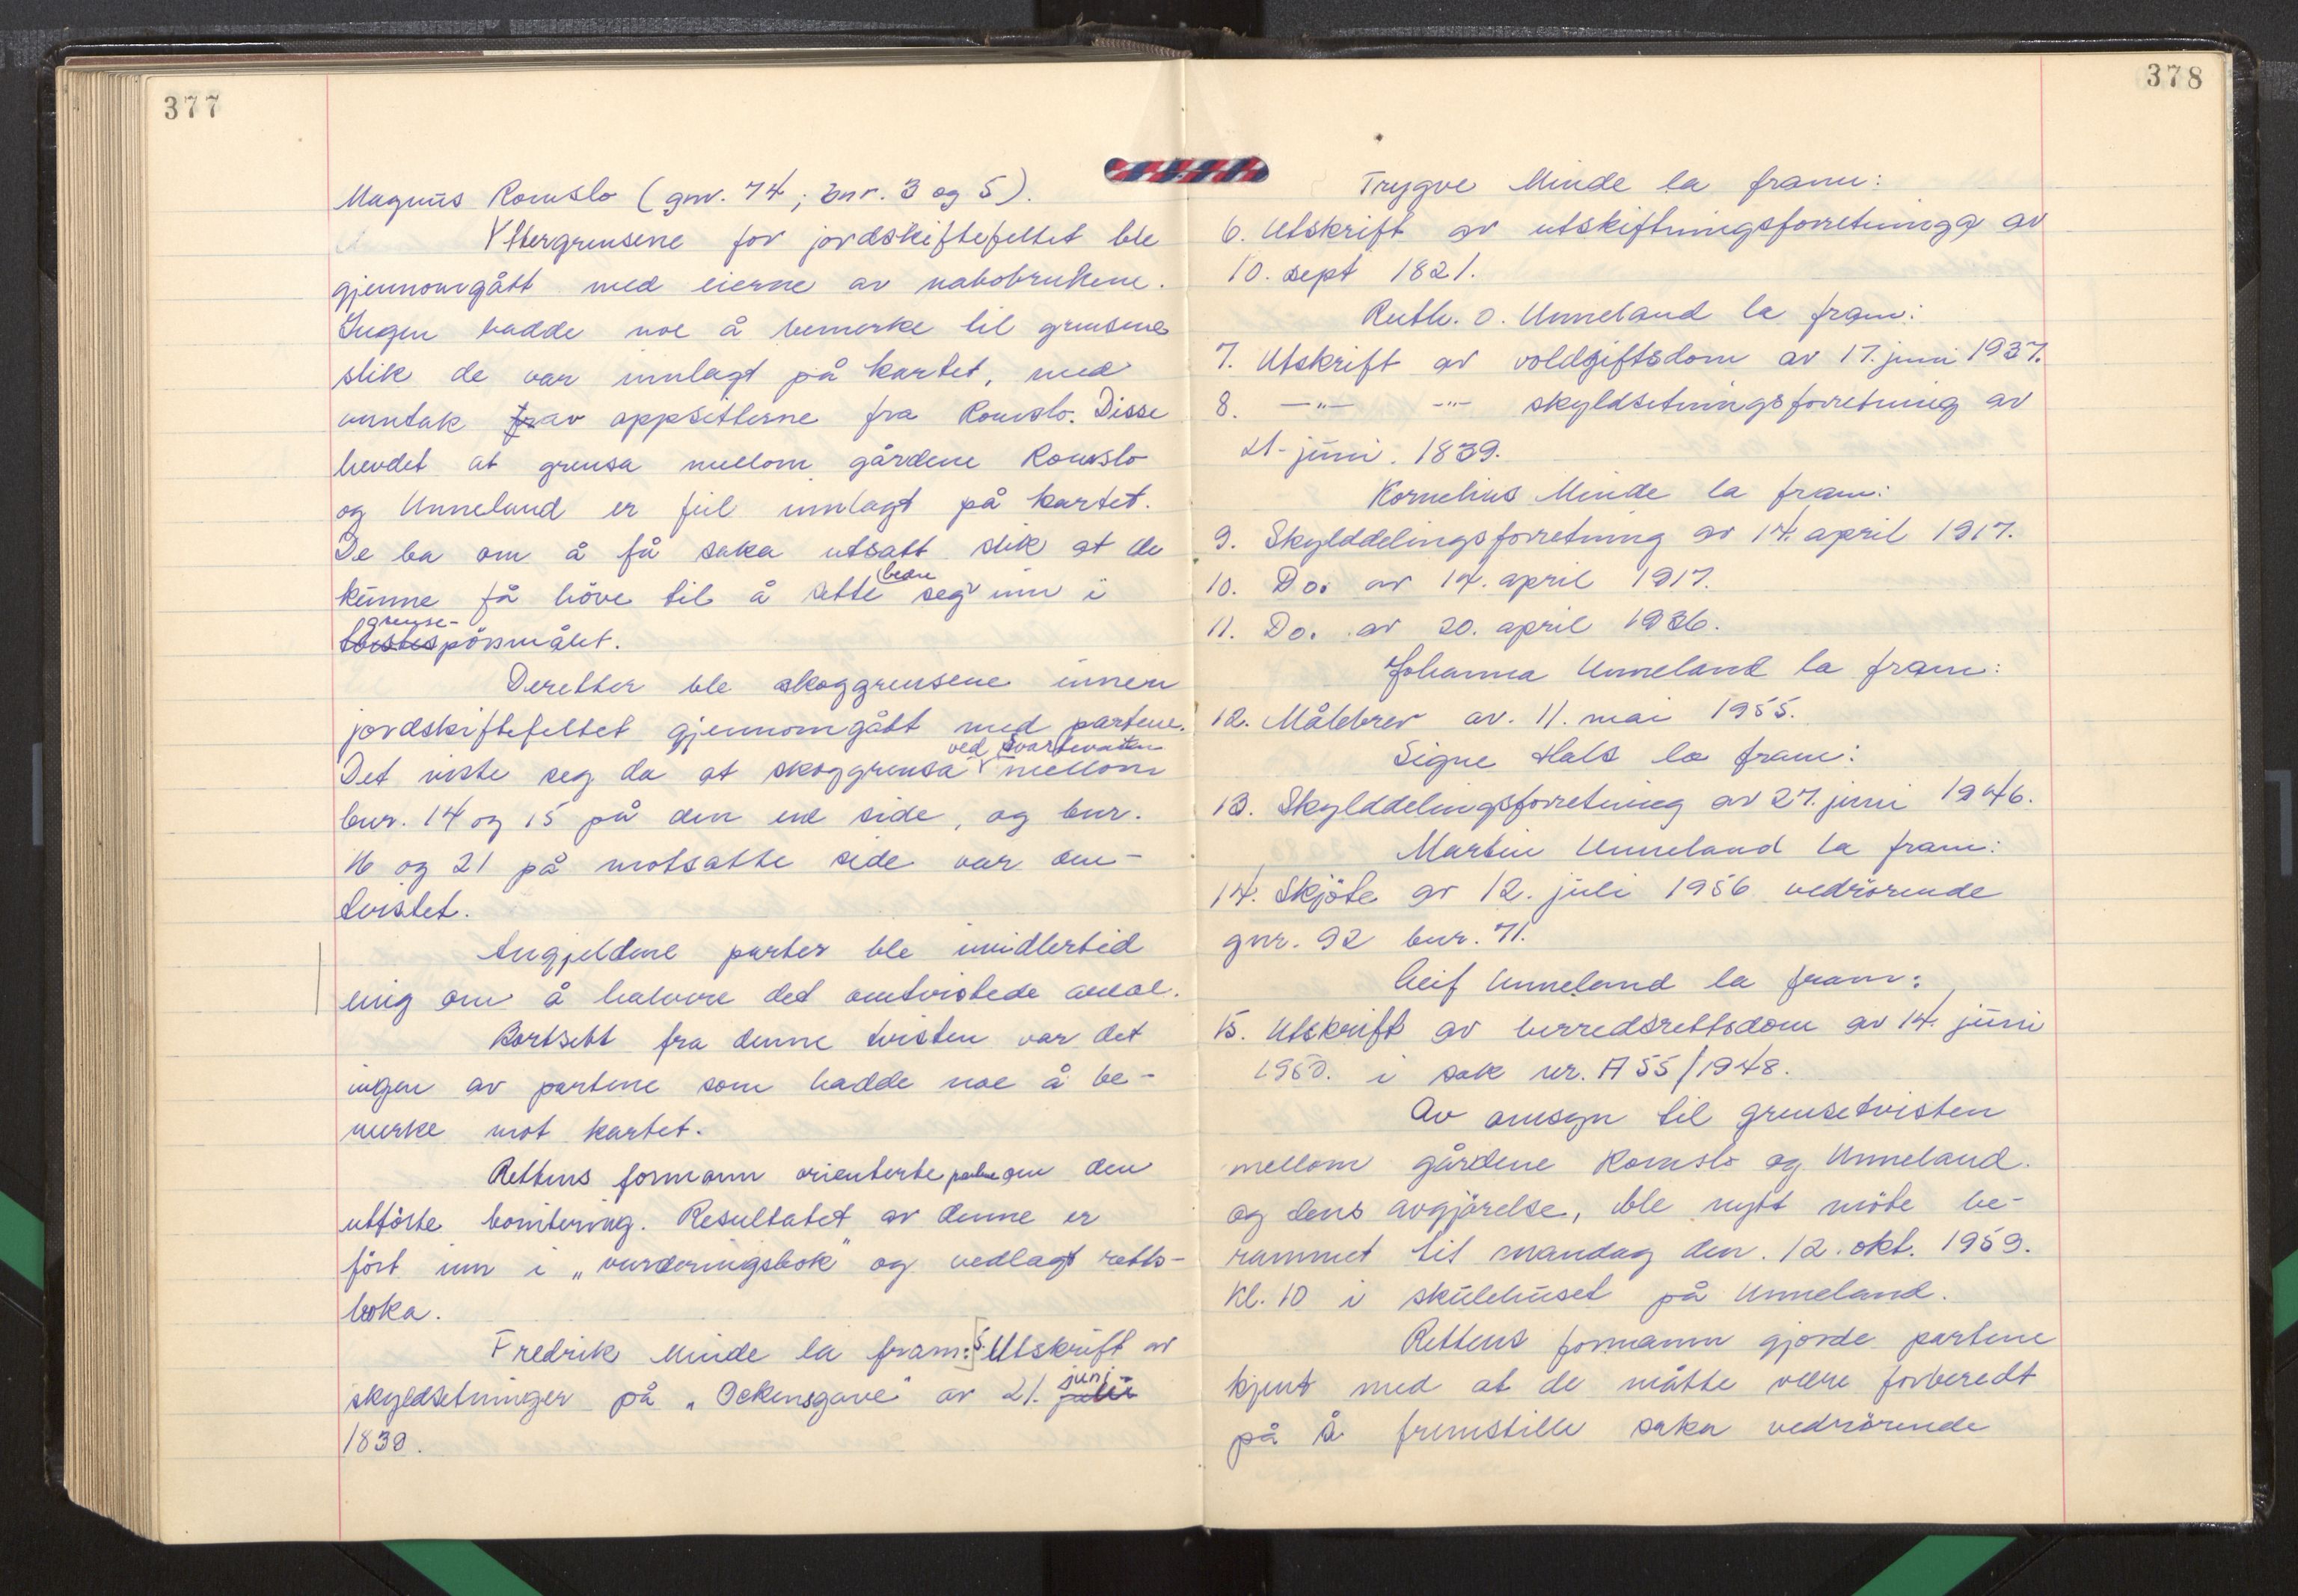 377
Magnus Romslo (gnr. 74; bnr. 3 og 5).
Yttergrensene for jordskiftefeltet ble
gjennomgått med eierne av nabobrukene.
Ingen hadde noe å bemerke til grensene
slik de var innlagt på kartet, med
unntak fr av oppsitterne fra Romslo. Disse
hevdet at grensa mellom gårdene Romslo
og Unneland er feil innlagt på kartet.
De ba om å få saka utsatt slik at de
bedre
kunne få höve til å sette seg inn i
grense-
tvistespörsmålet.
Deretter ble skoggrensene innen
jordskiftefeltet gjennomgått med partene.
ved Svartevatn
Det viste seg da at skoggrensa mellom
bnr. 14 og 15 på den ene side, og bnr.
16 og 21 på motsatte side var om-
tvistet.
Angjeldene parter ble imidlertid
enig om å halvere det omtvistede areal.
Bortsett fra denne tvisten var det
ingen av partene som hadde noe å be-
merke mot kartet.
Rettens formann orienterte partene om den
utförte bonitering. Resultatet av denne er
fört inn i „vurderingsbok" og vedlagt retts-
boka.
Fredrik Minde la fram: 5. Utskrift av
juni
skyldsetninger på „Ockensgave" av 21. juli
1839.
378
Trygve Minde la fram:
6. Utskrift av utskiftningsforretninga av
10. sept 1821.
Ruth. O. Unneland la fram:
7. Utskrift av voldgiftsdom av 17. juni 1937.
8. —"— -"- skyldsetningsforretning av
21. juni. 1839.
Kornelius Minde la fram:
9. Skylddelingsforretning av 14. april 1917.
10. Do. av 14. april 1917.
11. Do. av 20. april 1936.
Johanna Unneland la fram:
12. Målebrev av. 11. mai 1955.
Signe Hals la fram:
13. Skylddelingsforretning av 27. juni 1946.
Martin Unneland la fram:
14. Skjöte av 12. juli 1956 vedrörende
gnr. 92 bnr. 71.
Leif Unneland la fram:
15. Utskrift av herredsrettsdom av 14. juni
1950. i sak nr. A 55/1948.
Av omsyn til grensetvisten
mellom gårdene Romslo og Unneland.
og dens avgjörelse, ble nytt möte be-
rammet til mandag den. 12. okt. 1959.
Kl. 10 i skulehuset på Unneland.
Rettens formann gjorde partene
kjent med at de måtte være forberedt
på å fremstille saka vedrörende